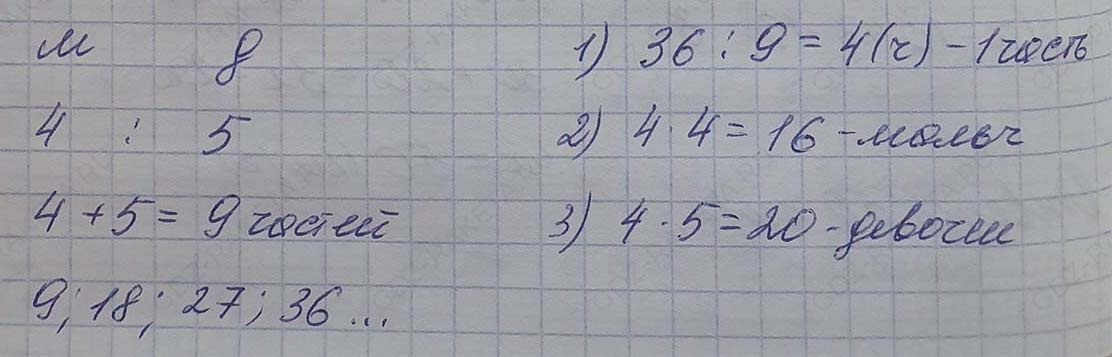 м д
4 : 5
4 + 5 = 9 частей
9; 18; 27; 36 ...
1) 36 : 9 = 4 (ч) - 1 часть
2) 4 · 4 = 16 - мальч
3) 4 · 5 = 20 - девочки